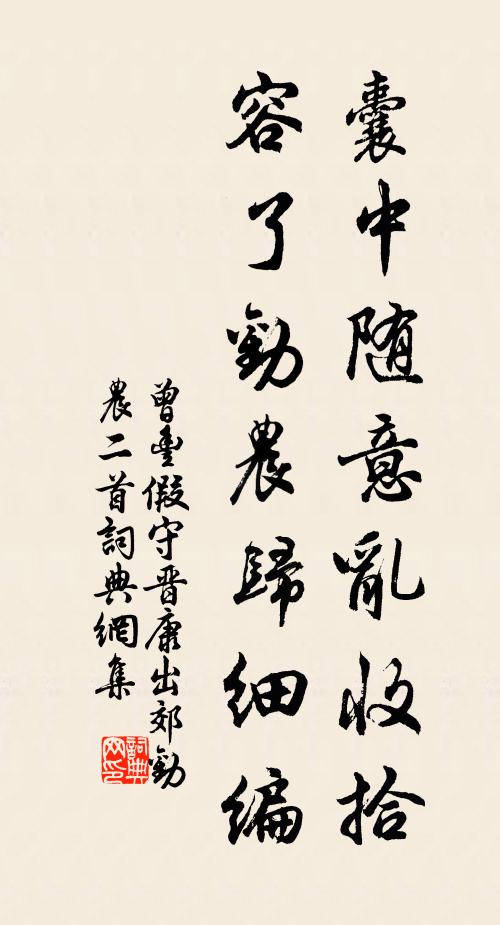 囊中随意亂收拾
容了勸農歸細编
曾豊假守晋康出郊勸
農二首詞典網集
詞典网印